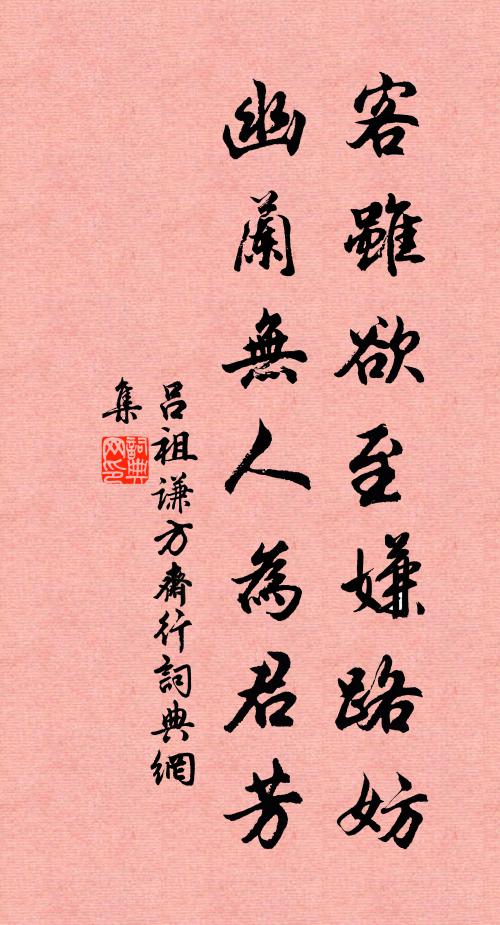 客雖欲至嫌路妨
幽蘭無人為君芳
呂祖謙方齋行詞典網
集
詞典網印